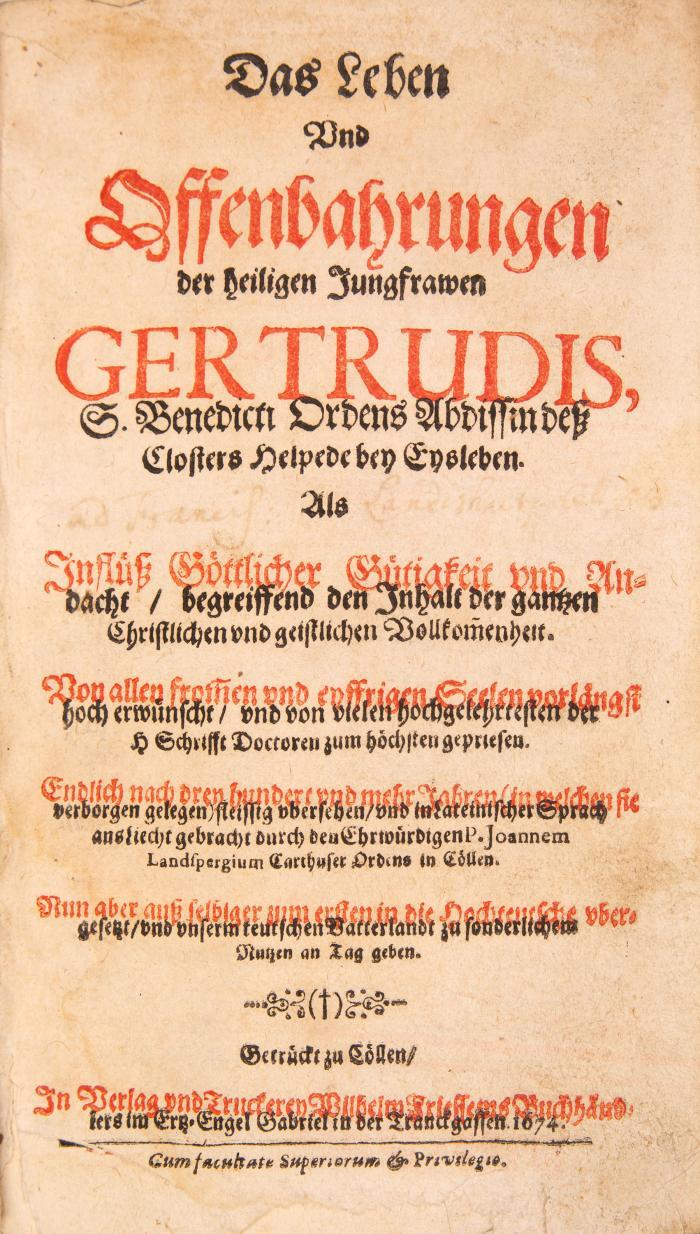 Das Leben
Vnd
Offenbahrungen
der heiligen Jungfrawen
GERTRUDIS,
S. Benedicti Ordens Abdissin deß
Closters Helpede bey Eysleben.
Als
Jnflüß Göttlicher Gütigkeit vnd An-
dacht / begreiffend den Jnhalt der gantzen
Christlichen vnd geistlichen Vollkom̃enheit.
Von allen from̃en vnd eyffrigen Seelen vorlängst
hoch erwünscht / vnd von vielen hochgelehrtesten der
H Schrifft Doctoren zum höchsten gepriesen.
Endlich nach drey hundert vnd mehr Jahren (in welchen sie
verborgen gelegen) fleissig vbersehen / vnd in Lateinischer Sprach
ans liecht gebracht durch den Ehrwürdigen P. Joannem
Landspergium Carthuser Ordens in Cöllen.
Nun aber auß selbiger zum ersten in die Hochteutsche vber-
gesetzt / vnd vnserm teutschen Vatterlandt zu sonderlichem
Nutzen an Tag geben.
(†)
Getrückt zu Cöllen /
Jn Verlag vnd Truckerey Wilhelm Friessems Buchhänd-
lers im Ertz-Engel Gabriel in der Tranckgassen. 1674.
Cum facultate Superiorum & Privilegio.